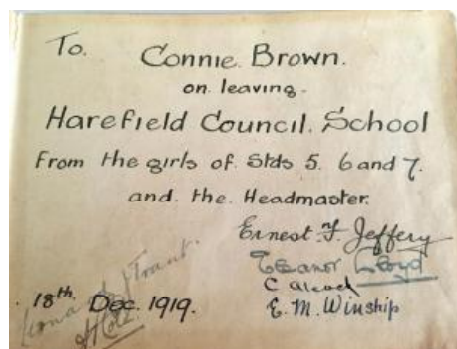 To. Connie. Brown.
on. leaving.
Harefield Council. School
From the girls of. Stds 5. 6 and 7.
and. the. Headmaster.
Ernest. F. Jeffery
Eleanor Lloyd
C
E. M. Winship
18th Dec. 1919.